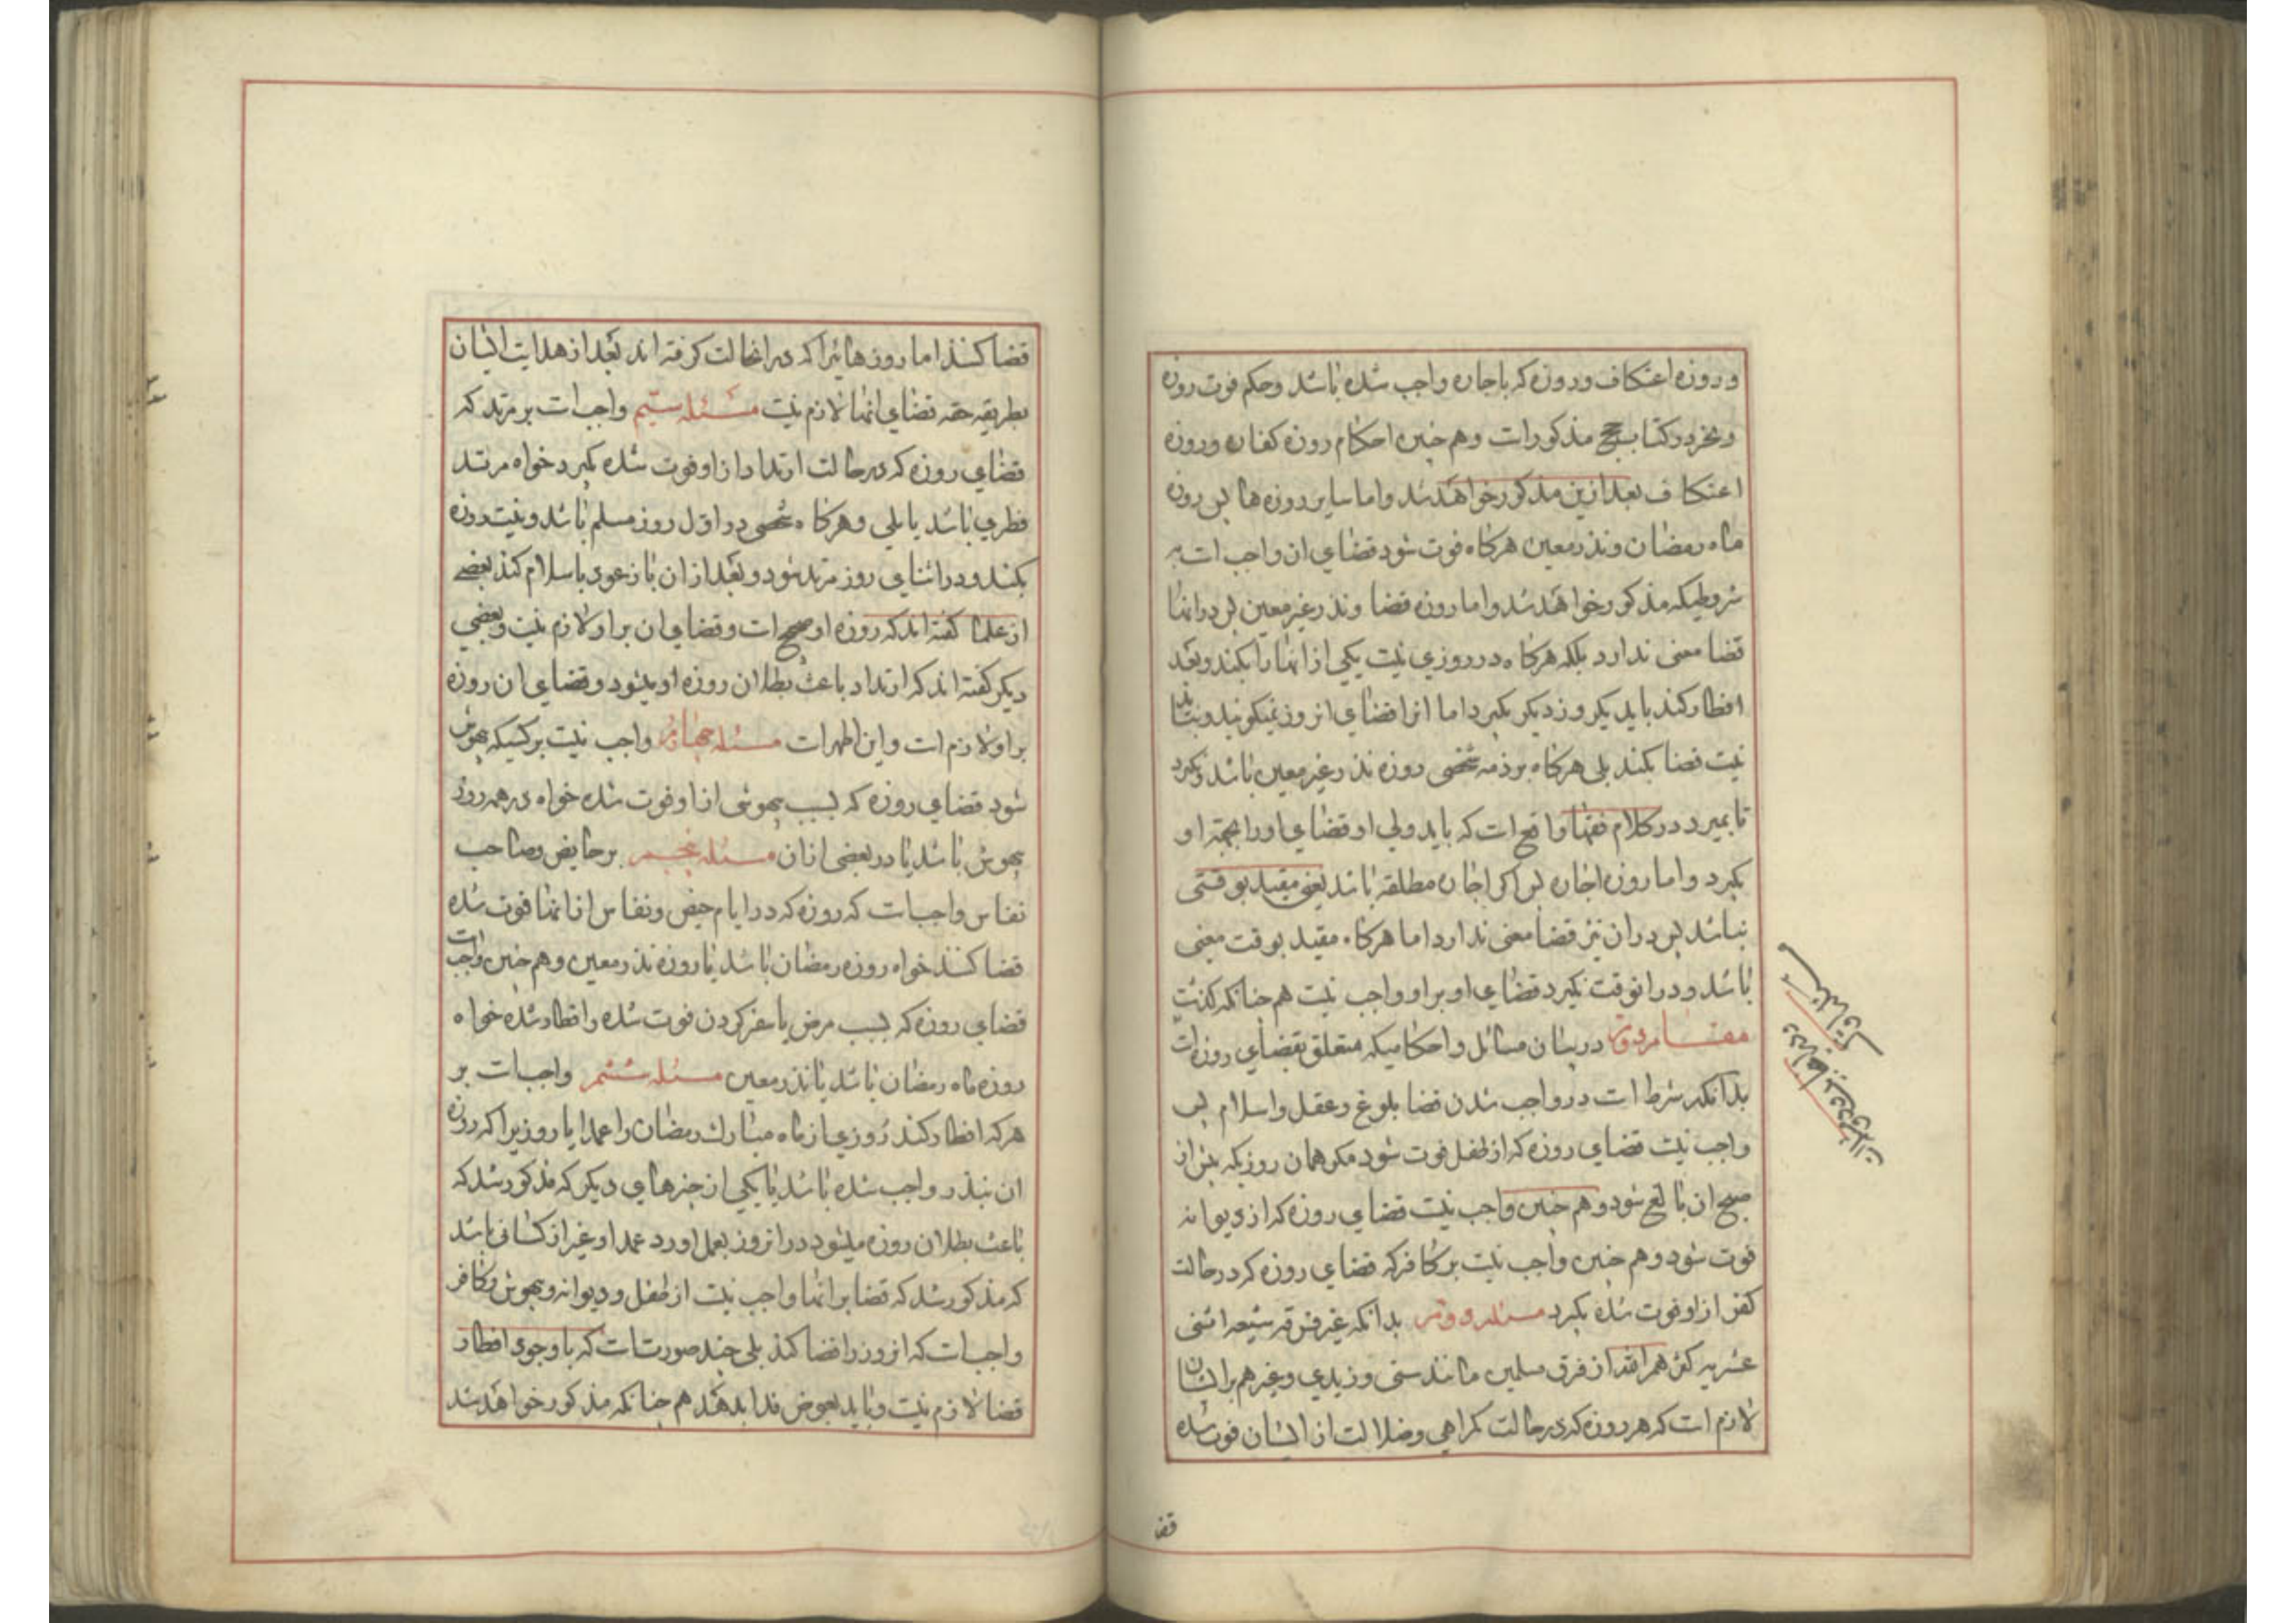 و روزه اعتکاف و روزه که باجاره واجب شده باشد و حکم فوت روزه
در کتاب حج مذکورات و هم چنین احکام روزه کفاره و روزه
اعتکاف بعد ازین مذکور خواهد شد و اما سایر روزه ها پس روزه
ماه رمضان و نذر معین هرکاه فوت شود قضای ان واجب است به
شروطیکه مذکور خواهد شد و اما روزه قضا و نذر غیر معین پس در انها
قضا معنی ندارد بلکه هرکاه در روزی نیت یکی از انها را بکند و بعد
افطار کند باید یکروز دیکر بکیرد اما انرا قضای انروز نمیکویند و نباید
نیت قضا بکند بلی هرکاه بر ذمه شخصی روزه نذر غیر معین باشد و نکیرد
تا بمیرد در کلام فقها واقع است که باید ولی او قضای او را بجهة او
بکیرد و اما روزه اجاره پس اکر اجاره مطلقه باشد یعنی مقید بوقتی
نباشد پس در ان نیز قضا معنی ندارد اما هرکاه مقید بوقت معینی
باشد و در انوقت نکیرد قضای او بر او واجب نیست هم چنانکه کذشت
مقام دویم در بیان مسائل و احکامیکه متعلق بقضای روزه است
بدانکه شرط است در واجب شدن قضا بلوغ و عقل و اسلام پس
واجب نیست قضای روزه که از طفل فوت شود مکر همان روزیکه پیش از
صبح ان بالغ شود و هم چنین واجب نیست قضای روزه که از دیوانه
فوت شود و هم چنین واجب نیست بر کافر که قضای روزه که در حالت
کفر از او فوت شده بکیرد مسئله دویم بدانکه غیر فرقه شیعه اثنی
عشریه از فرق مسلمین مانند سنی و زیدی و غیرهم بر ایشان
لازم است که هر روزه که در حالت کمراهی و ضلالت از ایشان فوت شده
قضا
قضا کنند اما روزهائیرا که در انحالت کرفته اند بعد از هدایت ایشان
بطریقه حقه قضای انها لازم نیست مسئله سیم واجب است بر مرتد که
قضای روزه که در حالت ارتداد از او فوت شده بکیرد خواه مرتد
فطری باشد یا ملی و هرکاه شخصی در اول روز مسلم باشد و نیت روزه
بکند و در اثنای روز مرتد شود و بعد از ان باز عود باسلام کند بعضی
از علما کفته اند که روزه او صحیح است و قضای ان بر او لازم نیست و بعضی
دیکر کفته اند که ارتداد باعث بطلان روزه او میشود و قضای ان روزه
بر او لازم است و این اظهر است مسئله چهارم واجب نیست بر کسیکه بیهوش
شود قضای روزه که بسبب بیهوشی از او فوت شده خواه در همه روز
بیهوش باشد یا در بعضی از ان مسئله پنجم بر حایض و صاحب
نفاس واجبست که روزه که در ایام حیض و نفاس از انها فوت شده
قضا کنند خواه روزه رمضان باشد یا روزه نذر معین و هم چنین واجب است
قضای روزه که بسبب مرض یا سفر کردن فوت شده و افطار شده خواه
روزه ماه رمضان باشد یا نذر معین مسئله ششم واجبست بر
هرکه افطار کند روزی از ماه مبارک رمضان را عمدا یا روزیرا که روزه
ان بنذر واجب شده باشد یا یکی از چیزهای دیکر که مذکور شد که
باعث بطلان روزه میشود در انروز بعمل اورد عمدا و غیر از کسانی باشد
که مذکور شد که قضا بر انها واجب نیست از طفل و دیوانه و بیهوش و کافر
واجبست که انروز را قضا کند بلی چند صورتست که باوجود افطار
قضا لازم نیست و باید بعوض فدا بدهند هم چنانکه مذکور خواهد شد